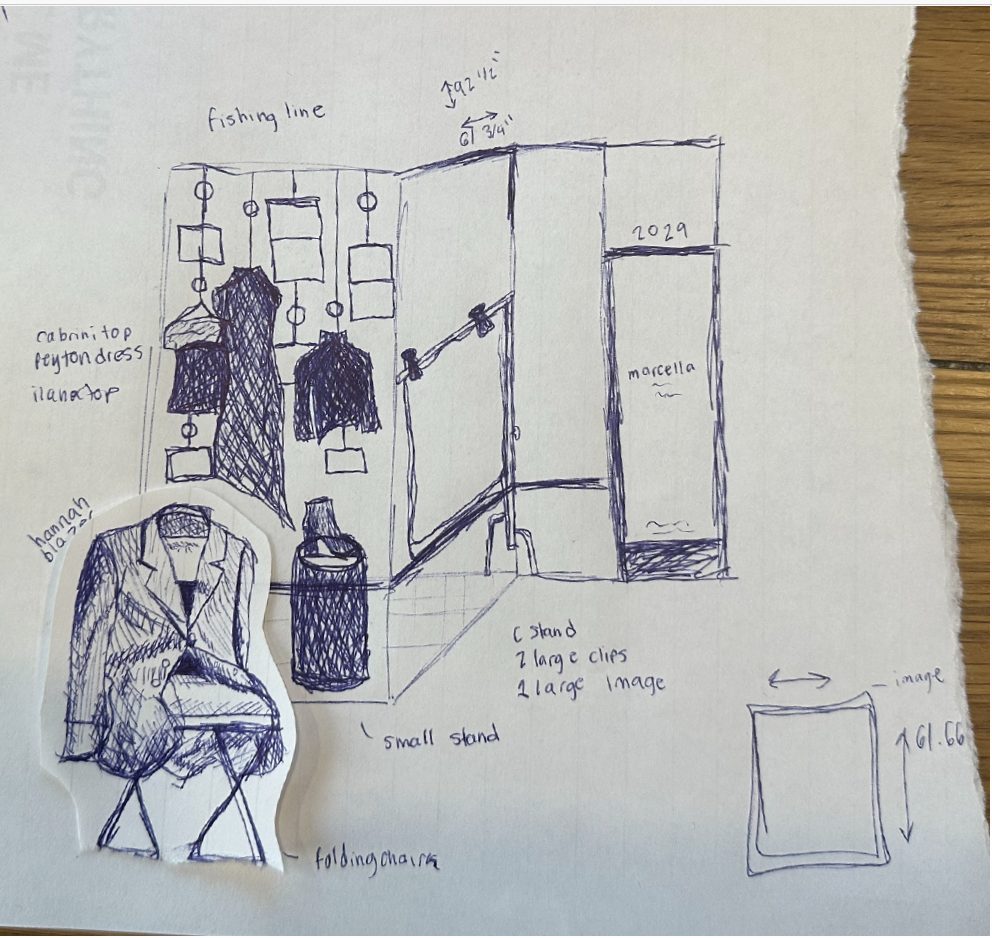 92 1/2"
61 3/4"
fishing line
2029
cabrini top
peyton dress
ilana top
marcella
hannah
blazer
C stand
2 large clips
1 large image
image
61.66
small stand
folding chairs